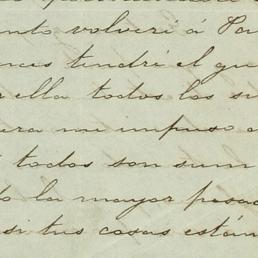 nto volveré á Pa
nces tendré el gu
ella todos los su
era me impuso
todos son sum
o la mayor pesa
si tus cosas están